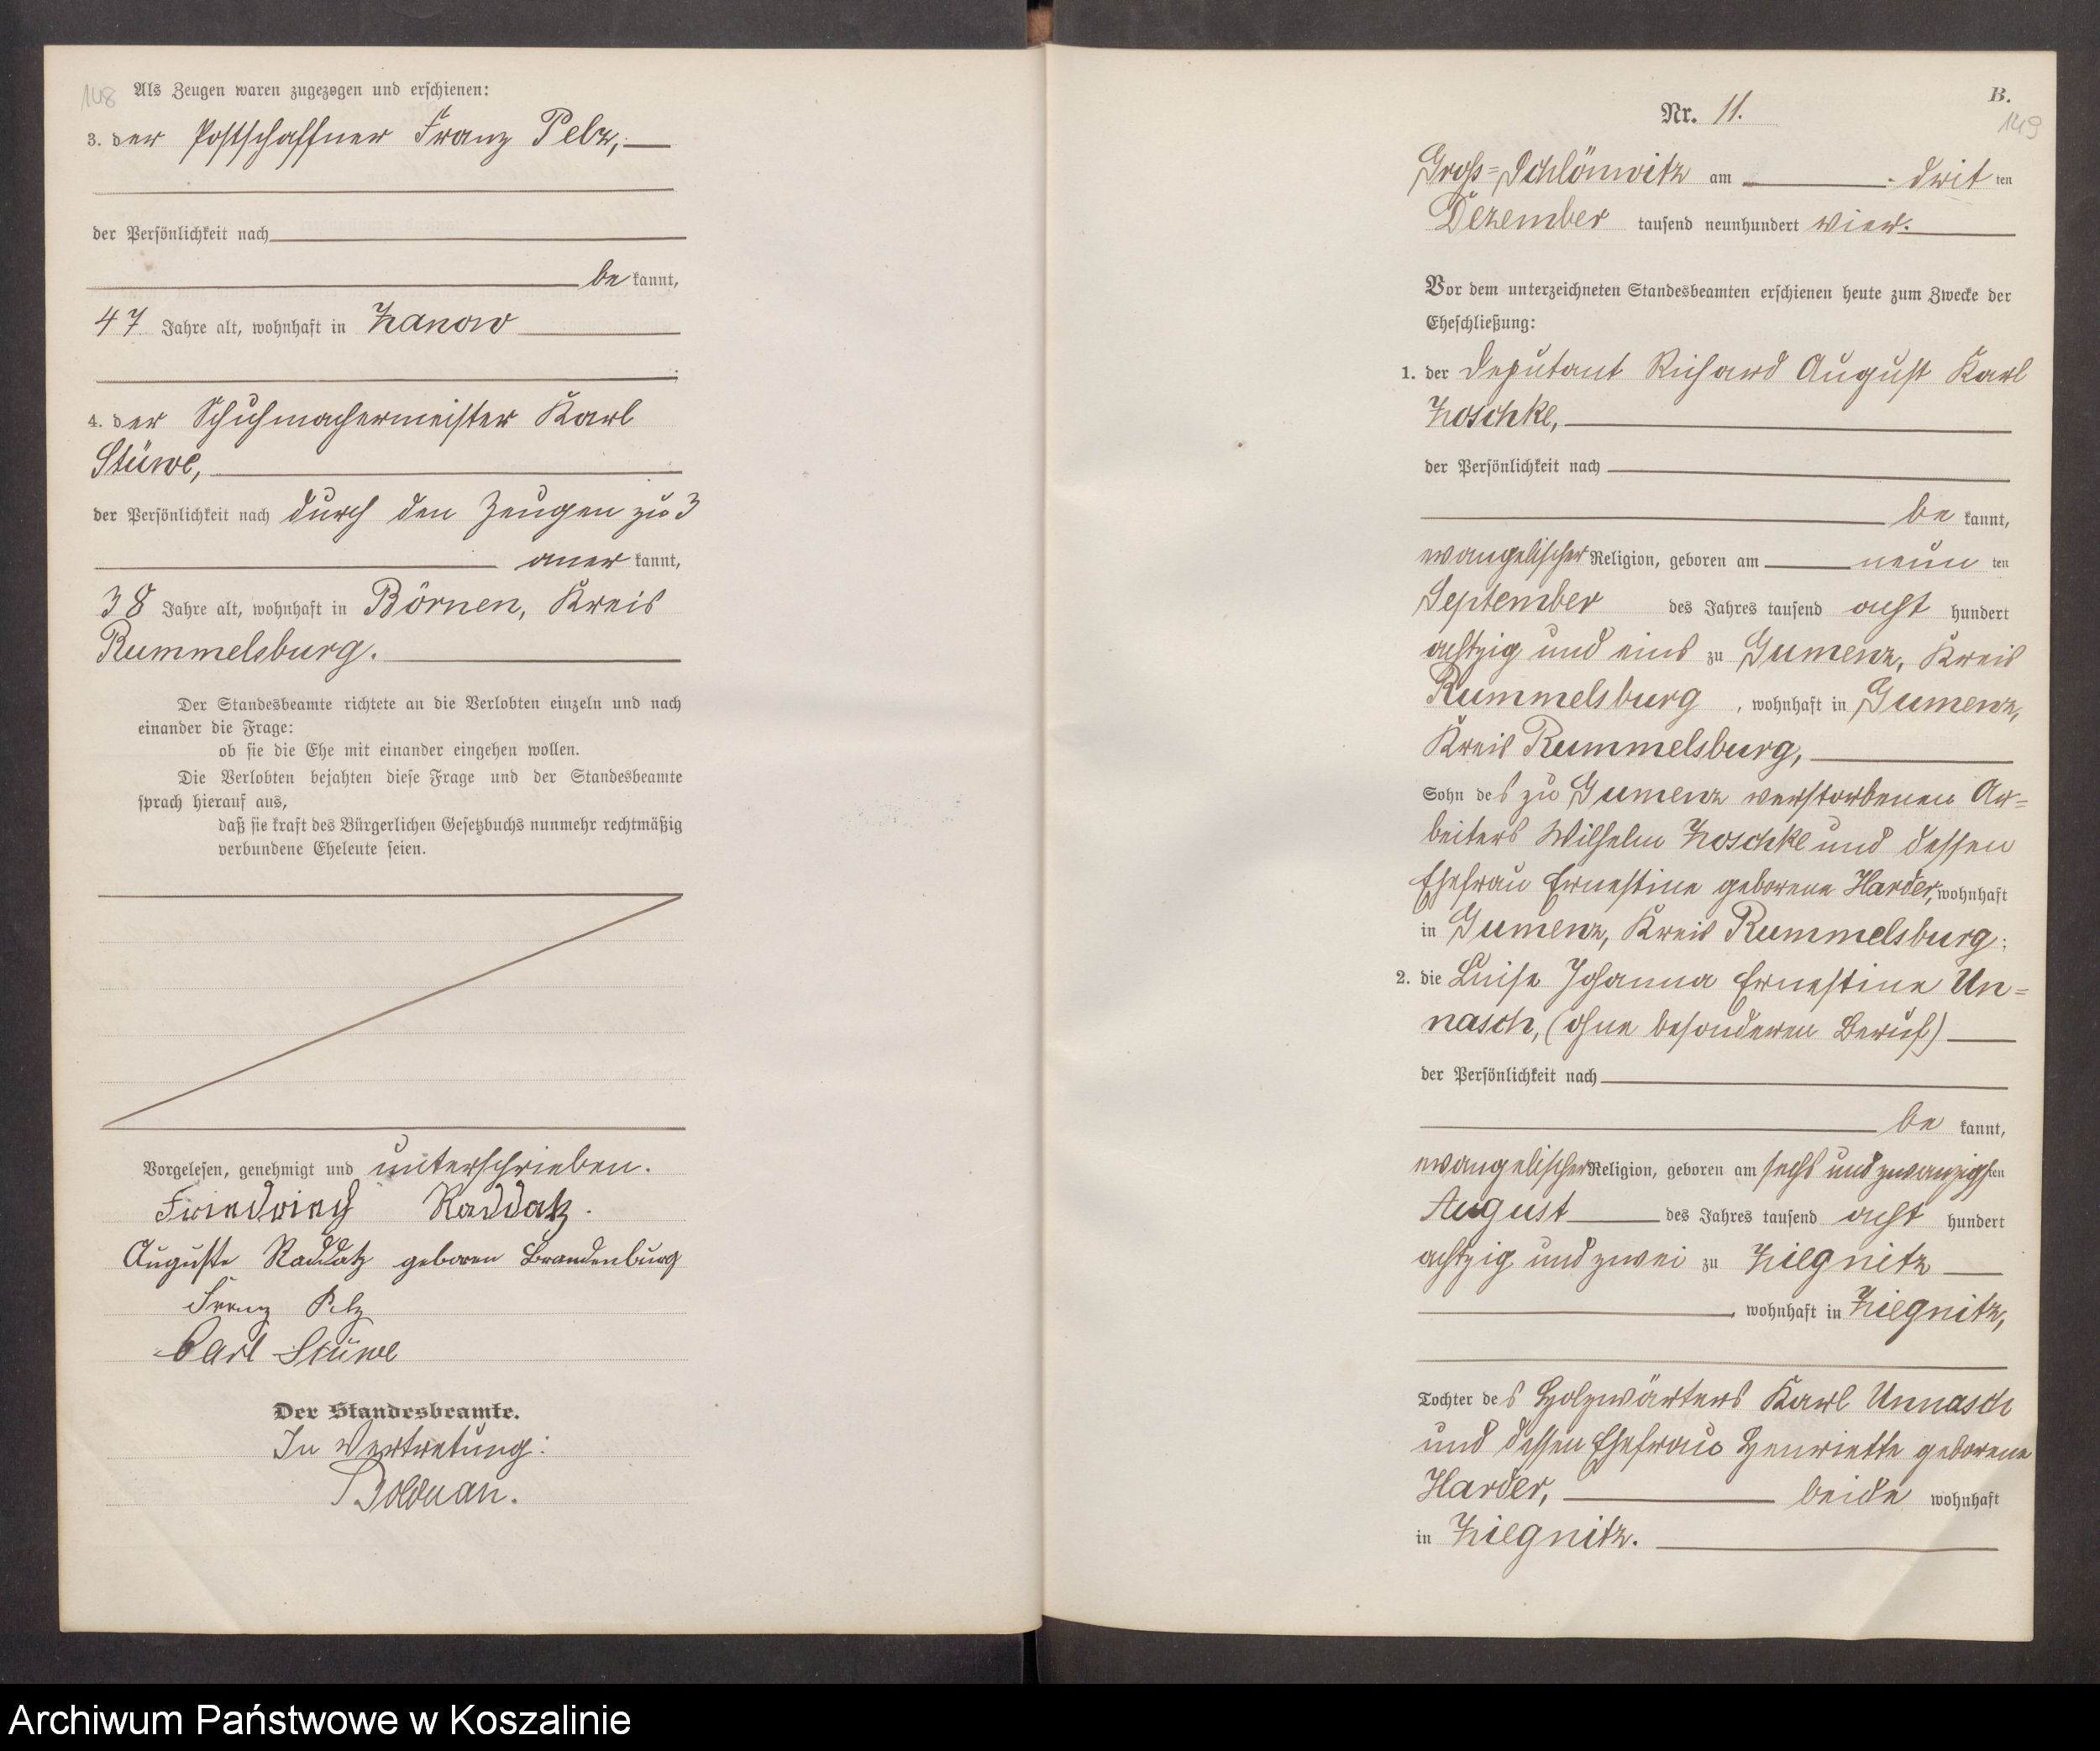 148
Als Zeugen waren zugezogen und erschienen:
3. der Postschaffner Franz Pelz,
der Persönlichkeit nach
be kannt,
47 Jahre alt, wohnhaft in Zanow
4. der Schuhmachermeister Karl
Stüwe,
der Persönlichkeit nach durch den Zeugen zu 3
aner kannt,
38 Jahre alt, wohnhaft in Börnen, Kreis
Rummelsburg.
Der Standesbeamte richtete an die Verlobten einzeln und nach
einander die Frage:
ob sie die Ehe mit einander eingehen wollen.
Die Verlobten bejahten diese Frage und der Standesbeamte
sprach hierauf aus,
daß sie kraft des Bürgerlichen Gesetzbuchs nunmehr rechtmäßig
verbundene Eheleute seien.
Vorgelesen, genehmigt und unterschrieben.
Friedrich Raddatz.
Auguste Raddatz geboren Brandenburg
Franz Pelz
Carl Stüwe
Der Standesbeamte.
In Vertretung:
Bolduan.
B.
Nr. 11.
149
Groß=Schlönwitz am dritten
Dezember tausend neunhundert vier.
Vor dem unterzeichneten Standesbeamten erschienen heute zum Zwecke der
Eheschließung:
1. der Deputant Richard August Karl
Zoschke,
der Persönlichkeit nach
be kannt,
evangelischer Religion, geboren am neunten
September des Jahres tausend acht hundert
achtzig und eins zu Gumenz, Kreis
Rummelsburg, wohnhaft in Gumenz,
Kreis Rummelsburg,
Sohn des zu Gumenz verstorbenen Ar=
beiters Wilhelm Zoschke und dessen
Ehefrau Ernestine geborene Harder, wohnhaft
in Gumenz, Kreis Rummelsburg:
2. die Luise Johanna Ernestine Un=
nasch, (ohne besonderen Beruf)
der Persönlichkeit nach
be kannt,
evangelischer Religion, geboren am sechs und zwanzigsten
August des Jahres tausend acht hundert
achtzig und zwei zu Ziegnitz
, wohnhaft in Ziegnitz,
Tochter des Holzwärters Karl Unnasch
und dessen Ehefrau Henriette geborene
Harder, beide wohnhaft
in Ziegnitz.
Archiwum Państwowe w Koszalinie